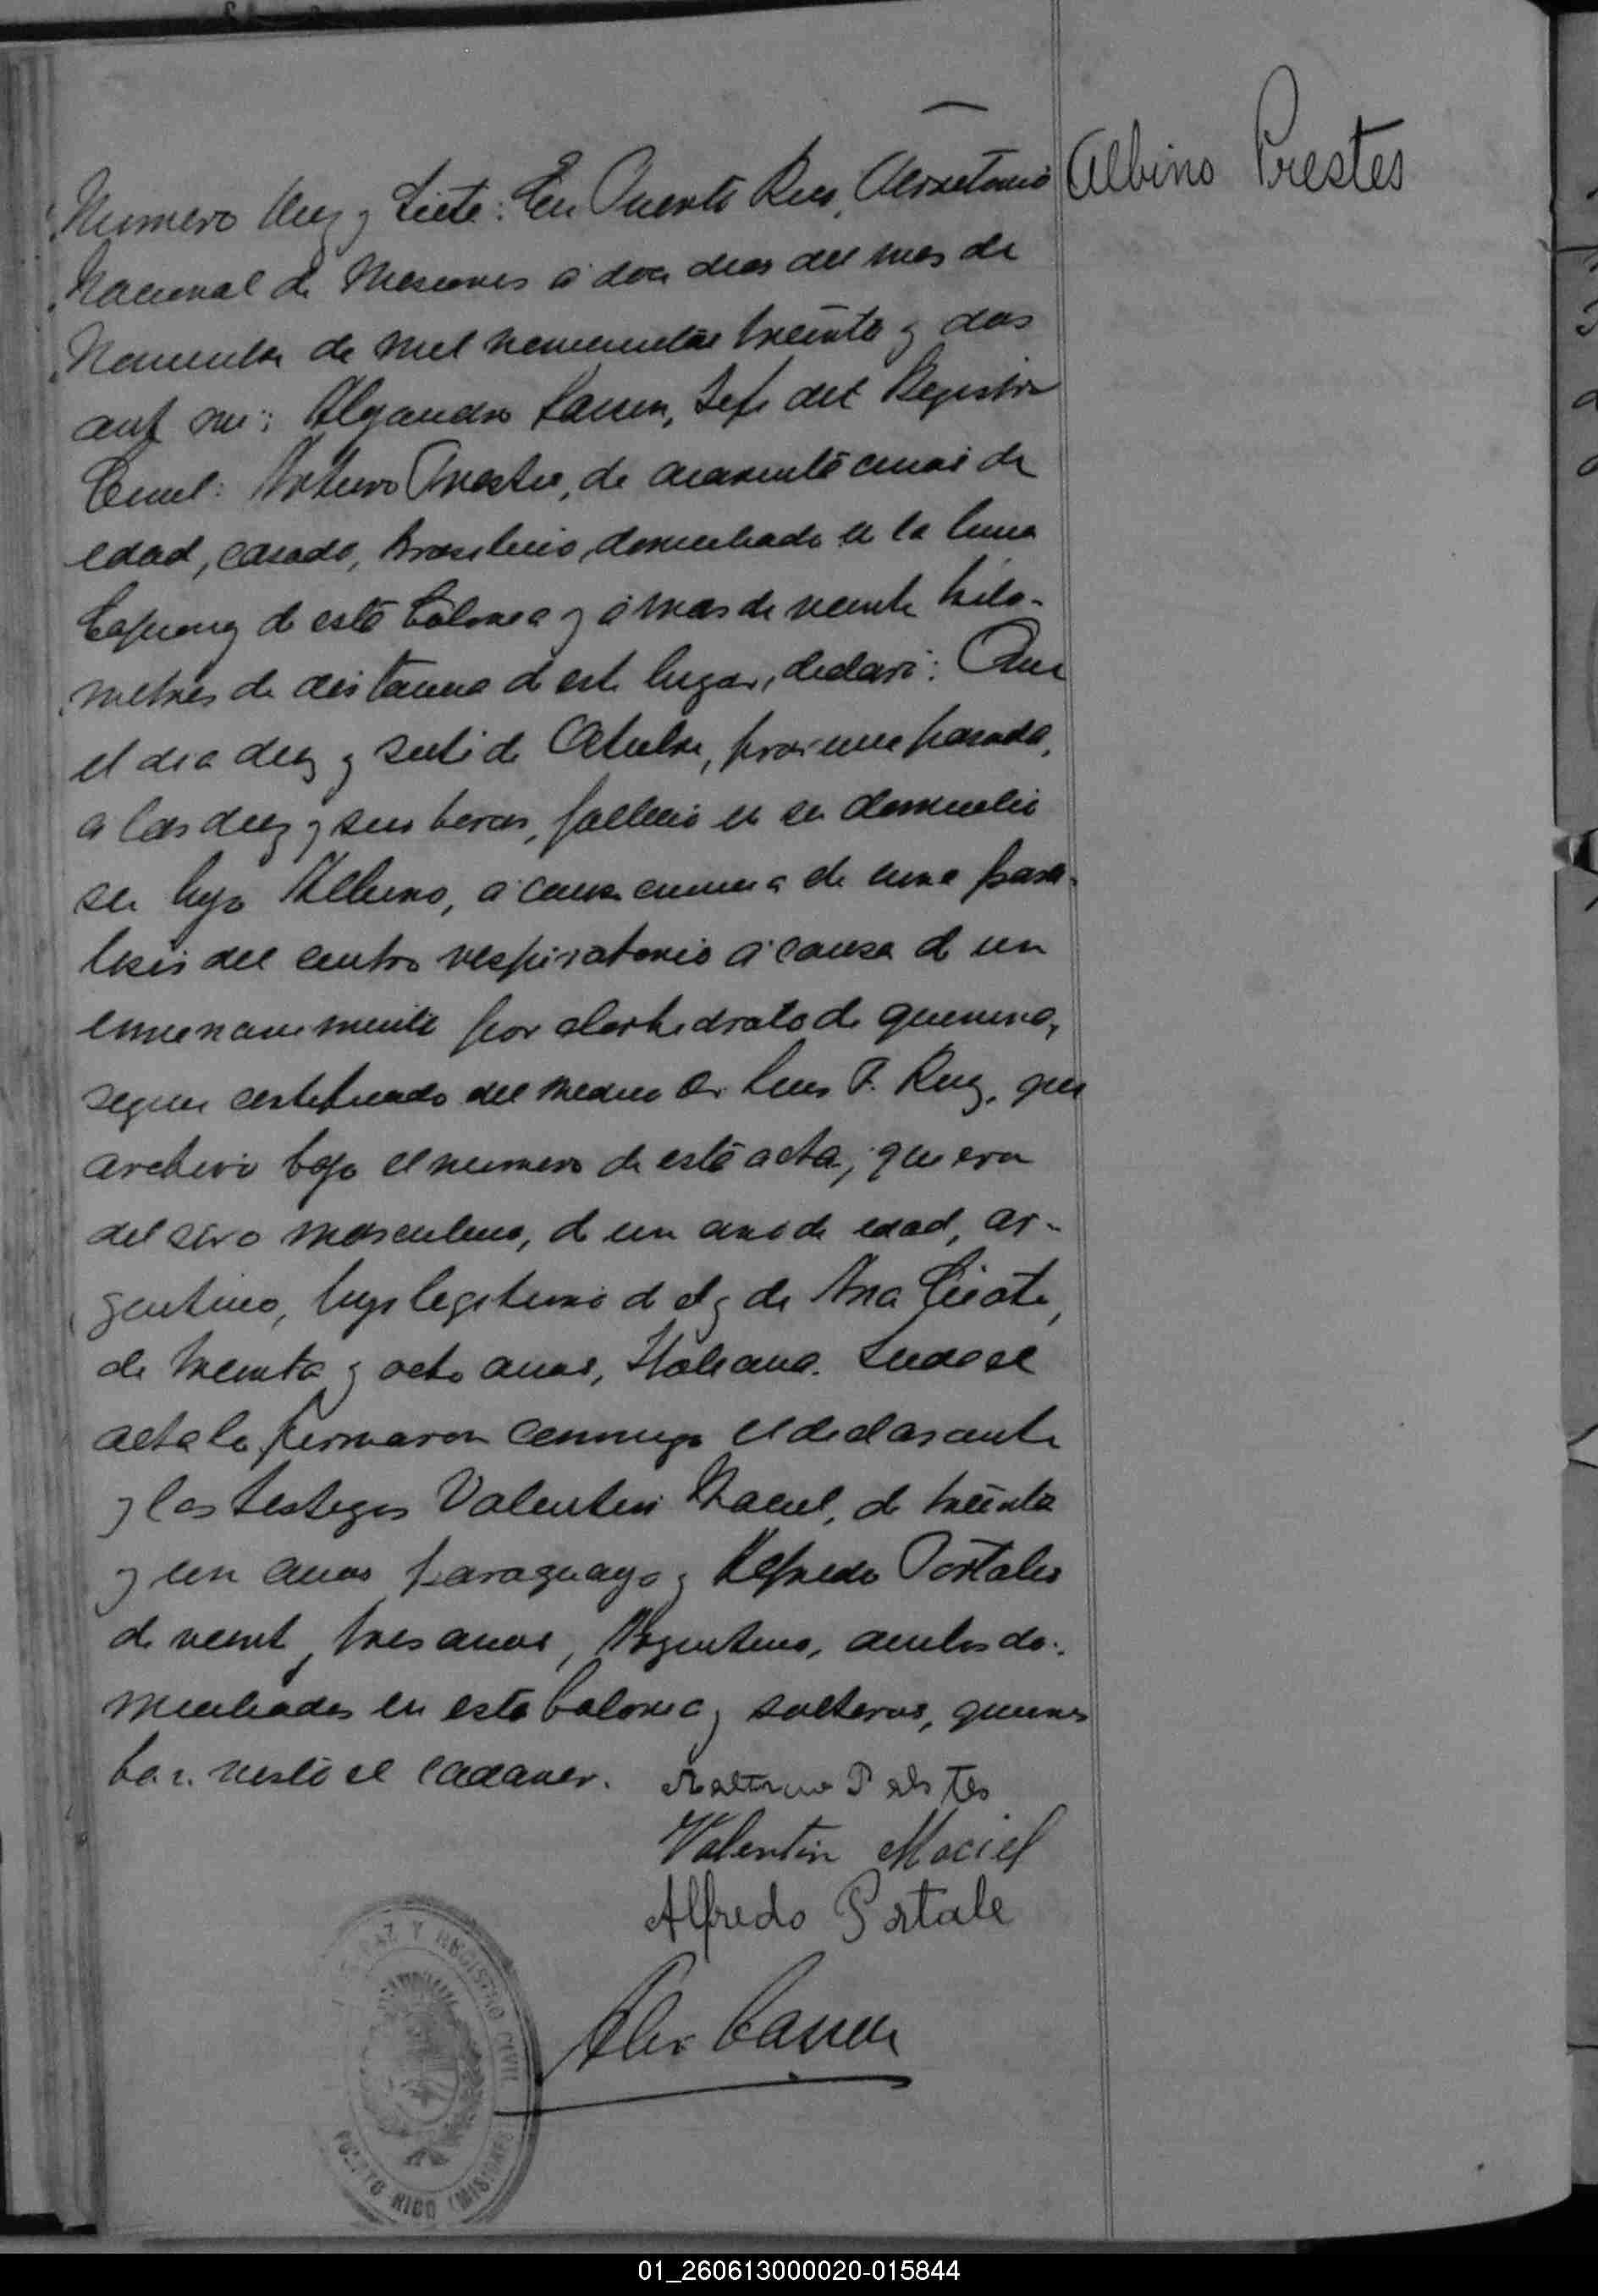 Albino Prestes
Numero diez y siete: En Puerto Rico, Territorio
Nacional de Misiones a doce dias del mes de
Noviembre de mil novecientos treinta y dos
ante mi: Alejandro Jefe del Registro
Civil: Arturo Prestes, de cuarenta años de
edad, casado, Brasilero, domiciliado en la linea
de esta Colonia y a mas de veinte kilo-
metros de distancia de este lugar, declaró: Que
el dia diez y siete de Octubre, proximo pasado,
a las diez y seis horas, falleció en su domicilio
su hijo Albino, a consecuencia de una para-
lisis del centro respiratorio a causa de un
envenenamiento por clorhidrato de quinina,
segun certificado del medico Dr Luis P. Ruiz, que
archivo bajo el numero de esta acta, que era
del sexo masculino, de un año de edad, ar-
gentino, hijo legitimo de el y de Ana
de treinta y ocho años, Italiana. Leida el
acta la firmaron conmigo el declarante
y los testigos Valentin Maciel, de treinta
y un años paraguayo y Alfredo Portales
de veinte y tres años, Argentino, ambos do-
miciliados en esta Colonia y solteros, quienes
han visto el cadaver.
Valentin Maciel
Alfredo Portale
PAZ Y REGISTRO CIVIL
PUERTO RICO (MISIONES)
01_260613000020-015844